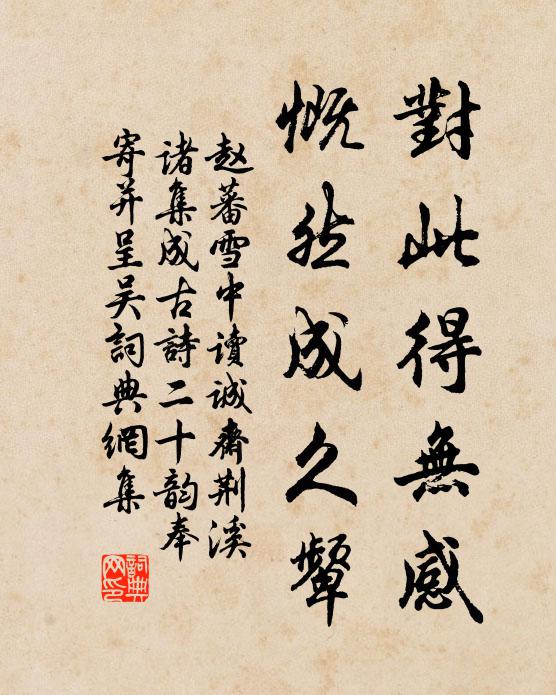 對此得無感
慨然成久颦
赵蕃雪中讀誠齋荆溪
諸集成古詩二十韵奉
寄并呈吴詞典網集
詞典网印